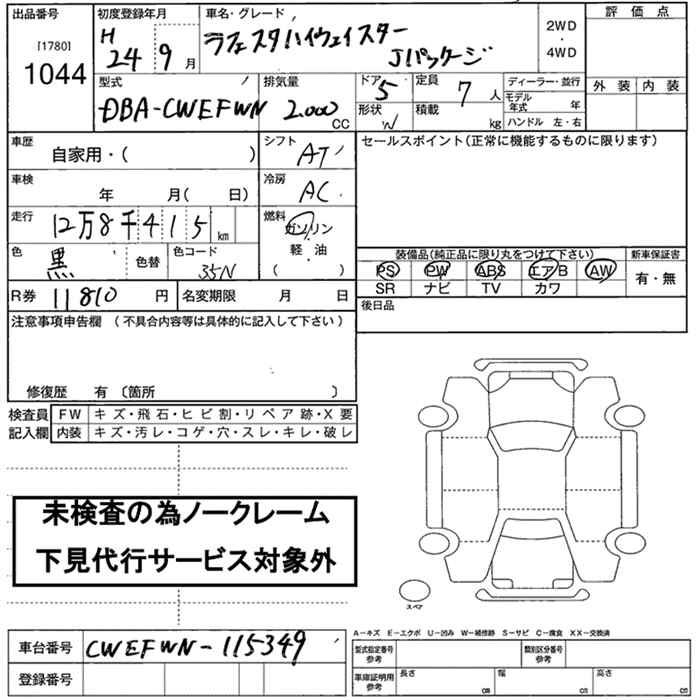 出品番号 初度登録年月 車名・グレード 評価点
[1780] H ラフェスタハイウェイスター 2WD
1044 24 9月 Jパッケージ ・ 4WD
型式 排気量 ドア 5 定員 7人 ディーラー・並行 外装 内装
DBA-CWEFWN 2.000 CC 形状 W 積載 kg モデル年式 年
ハンドル 左・右
車歴 自家用・( ) シフト AT セールスポイント(正常に機能するものに限ります)
車検 年 月( 日) 冷房 AC
走行 12万8千415km 燃料 ガソリン
軽・油
( )
色 黒 色替 色コード 35N 装備品(純正品に限り丸をつけて下さい) 新車保証書
PS PW ABS エアB AW 有・無
SR ナビ TV カワ
R券 11810円 名変期限 月 日 後日品
注意事項申告欄 (不具合内容等は具体的に記入して下さい)
修復歴 有 〔箇所 〕
検査員 FW キズ・飛石・ヒビ割・リペア跡・X要
記入欄 内装 キズ・汚レ・コゲ・穴・スレ・キレ・破レ
未検査の為ノークレーム
下見代行サービス対象外
スペア
A-キズ E-エクボ U-凹み W-補修跡 S-サビ C-腐食 XX-交換済
車台番号 CWEFWN-115349 型式指定番号 参考 類別区分番号 参考
登録番号 車庫証明用 参考 長さ cm 幅 cm 高さ cm